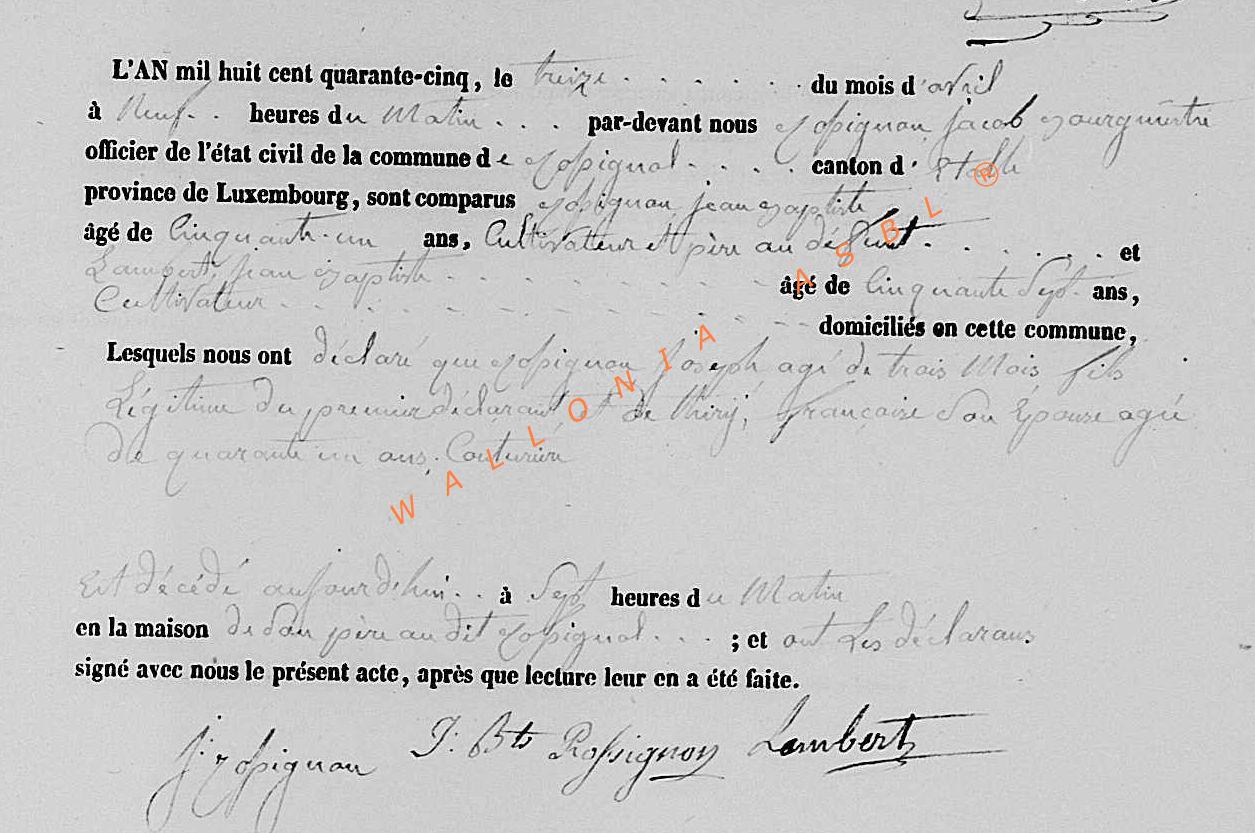 L'AN mil huit cent quarante-cinq, le treize du mois d'avril
à Neuf heures du Matin par-devant nous Rossignon Jacob Bourgmestre
officier de l'état civil de la commune de Rossignol canton d'Etalle
province de Luxembourg, sont comparus Rossignon jean Baptiste
âgé de Cinquante-un ans, Cultivateur et père au défunt et
Lambert, jean Baptiste âgé de Cinquante Sept ans,
Cultivateur domiciliés en cette commune,
Lesquels nous ont déclaré que Rossignon Joseph agé de trois Mois fils
Légitime du premier déclarant et de Thiry, françoise Son Epouse agée
de quarante un ans, Couturière
Est décédé aujourd'hui à Sept heures du Matin
en la maison de Son père au dit Rossignol ; et ont Les déclarans
signé avec nous le présent acte, après que lecture leur en a été faite.
J: Rossignon J: Bte Rossignon Lambert
WALLONIA ASBL ®